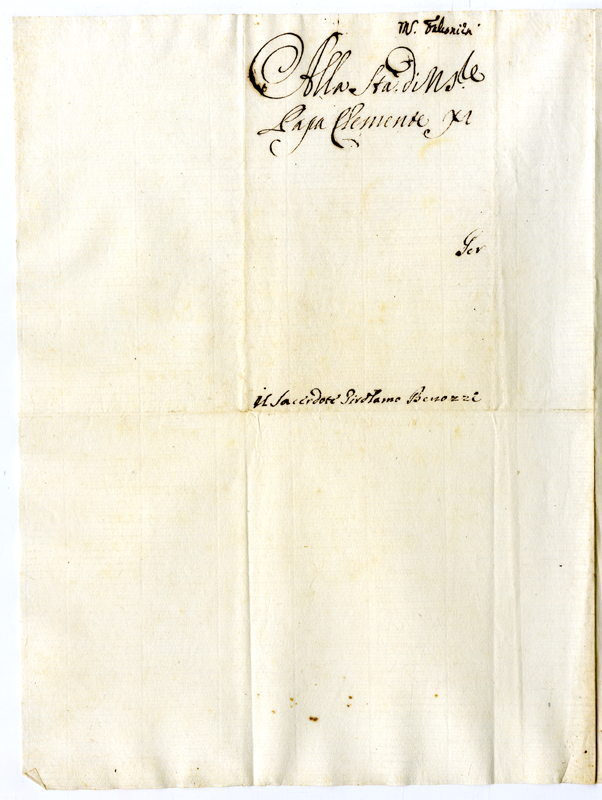 Mr. Falconieri
Alla Stà. di Nsle
Papa Clemente XI
Per
Il Sacerdote Girolamo Benozzi